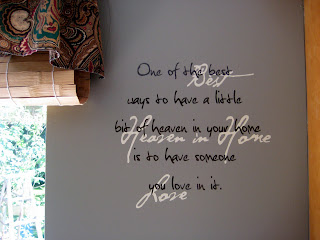 One of the best
Best
ways to have a little
bit of heaven in your home
Heaven in Home
is to have someone
you love in it.
Love